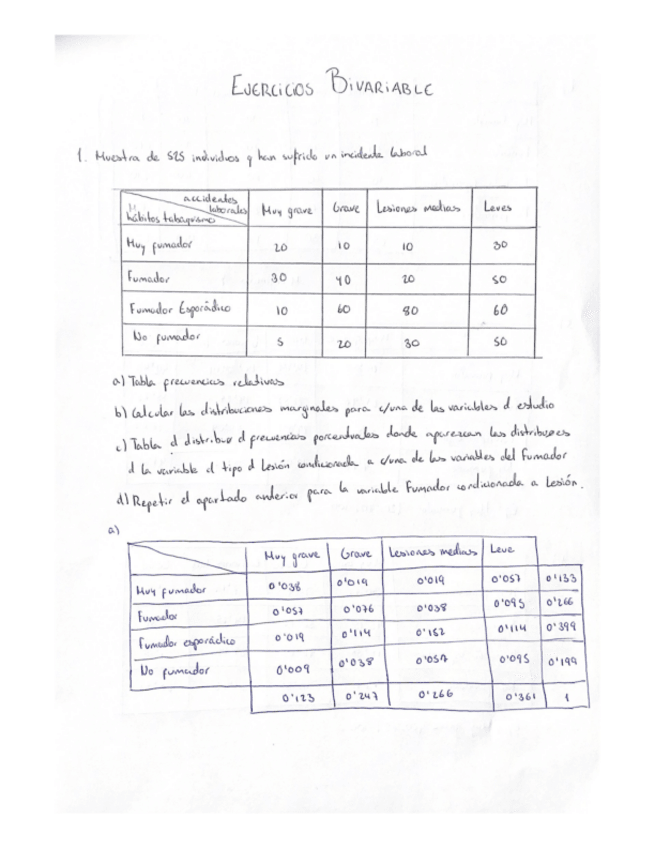 EJERCICIOS BIVARIABLE
1. Muestra de 525 individuos q han sufrido un incidente laboral
accidentes laborales
hábitos tabaquismo
Muy grave Grave Lesiones medias Leves
Muy fumador 20 10 10 30
Fumador 30 40 20 50
Fumador Esporádico 10 60 80 60
No fumador 5 20 30 50
a) Tabla frecuencias relativas
b) Calcular las distribuciones marginales para c/una de las variables d estudio
c) Tabla d distribuº d frecuencias porcentuales donde aparezcan las distribuºes
d la variable d tipo d Lesión condicionada a c/una de las variables del Fumador
d) Repetir el apartado anterior para la variable Fumador condicionada a Lesión.
a)
Muy grave Grave Lesiones medias Leve
Muy fumador 0'038 0'019 0'019 0'057 0'133
Fumador 0'057 0'076 0'038 0'095 0'266
Fumador esporádico 0'019 0'114 0'152 0'114 0'399
No fumador 0'009 0'038 0'057 0'095 0'199
0'123 0'247 0'266 0'361 1